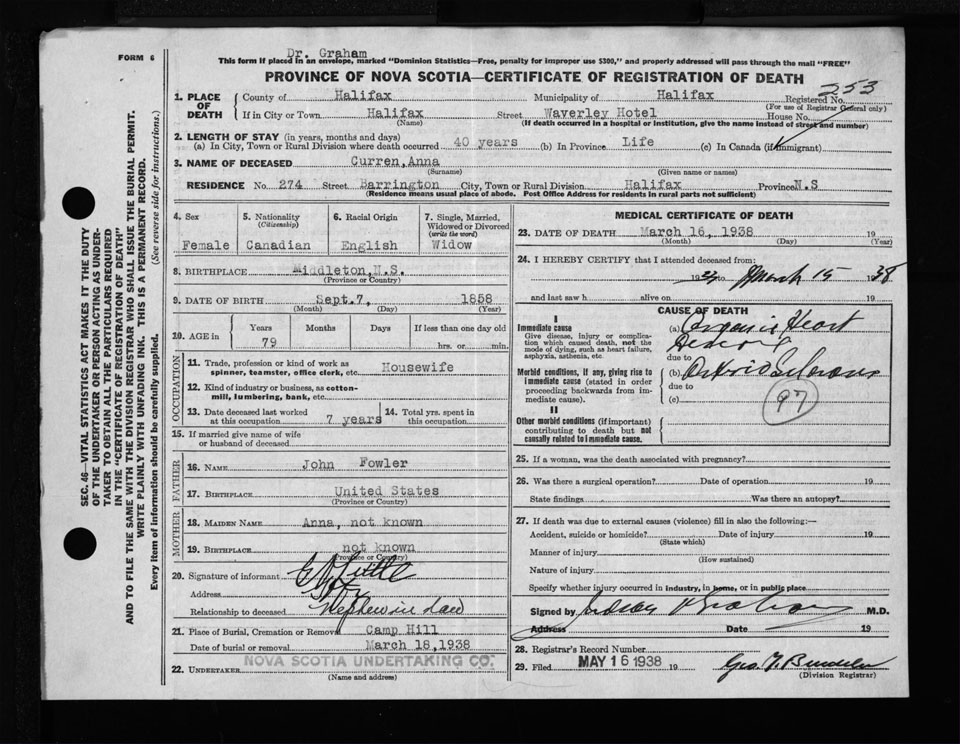 FORM 6
Dr. Graham
This form if placed in an envelope, marked "Dominion Statistics—Free, penalty for improper use $300," and properly addressed will pass through the mail "FREE"
PROVINCE OF NOVA SCOTIA—CERTIFICATE OF REGISTRATION OF DEATH
253
1. PLACE OF DEATH
County of Halifax Municipality of Halifax Registered No.
(For use of Registrar General only)
If in City or Town Halifax Street Waverley Hotel House No.
(Name) (If death occurred in a hospital or institution, give the name instead of street and number)
2. LENGTH OF STAY (in years, months and days)
(a) In City, Town or Rural Division where death occurred 40 years (b) In Province Life (c) In Canada (if immigrant)
3. NAME OF DECEASED Curren, Anna
(Surname) (Given name or names)
RESIDENCE No. 274 Street Barrington City, Town or Rural Division Halifax Province N.S
(Residence means usual place of abode. Post Office Address for residents in rural parts not sufficient)
4. Sex
Female
5. Nationality
(Citizenship)
Canadian
6. Racial Origin
English
7. Single, Married, Widowed or Divorced
(write the word)
Widow
8. BIRTHPLACE Middleton, N.S.
(Province or Country)
9. DATE OF BIRTH Sept. 7, 1858
(Month) (Day) (Year)
10. AGE in
Years Months Days If less than one day old
79 hrs. or min.
OCCUPATION
11. Trade, profession or kind of work as
spinner, teamster, office clerk, etc. Housewife
12. Kind of industry or business, as cotton-
mill, lumbering, bank, etc.
13. Date deceased last worked
at this occupation 7 years
14. Total yrs. spent in
this occupation.
15. If married give name of wife
or husband of deceased
FATHER
16. NAME John Fowler
17. BIRTHPLACE United States
(Province or Country)
MOTHER
18. MAIDEN NAME Anna, not known
19. BIRTHPLACE not known
(Province or Country)
20. Signature of informant
Address
Relationship to deceased Nephew in Law
21. Place of Burial, Cremation or Removal Camp Hill
Date of burial or removal March 18, 1938
22. UNDERTAKER NOVA SCOTIA UNDERTAKING CO.
(Name and address)
MEDICAL CERTIFICATE OF DEATH
23. DATE OF DEATH March 16, 1938 19
(Month) (Day) (Year)
24. I HEREBY CERTIFY that I attended deceased from:
19 to March 15 1938
and last saw h alive on 19
CAUSE OF DEATH
I
Immediate cause
Give disease, injury or complica-
tion which caused death, not the
mode of dying, such as heart failure,
asphyxia, asthenia, etc.
(a) Organic Heart
due to
Morbid conditions, if any, giving rise to
immediate cause (stated in order
proceeding backwards from im-
mediate cause).
(b)
due to
(c)
97
II
Other morbid conditions (if important)
contributing to death but not
causally related to immediate cause.
25. If a woman, was the death associated with pregnancy?
26. Was there a surgical operation? Date of operation 19
State findings Was there an autopsy?
27. If death was due to external causes (violence) fill in also the following:—
Accident, suicide or homicide? Date of injury 19
(State which)
Manner of injury
(How sustained)
Nature of injury
Specify whether injury occurred in industry, in home, or in public place
Signed by M.D.
Address Date 19
28. Registrar's Record Number
29. Filed MAY 16 1938 19 Geo.
(Division Registrar)
SEC. 46—VITAL STATISTICS ACT MAKES IT THE DUTY
OF THE UNDERTAKER OR PERSON ACTING AS UNDER-
TAKER TO OBTAIN ALL THE PARTICULARS REQUIRED
IN THE "CERTIFICATE OF REGISTRATION OF DEATH"
AND TO FILE THE SAME WITH THE DIVISION REGISTRAR WHO SHALL ISSUE THE BURIAL PERMIT.
WRITE PLAINLY WITH UNFADING INK. THIS IS A PERMANENT RECORD.
Every item of information should be carefully supplied. (See reverse side for instructions.)